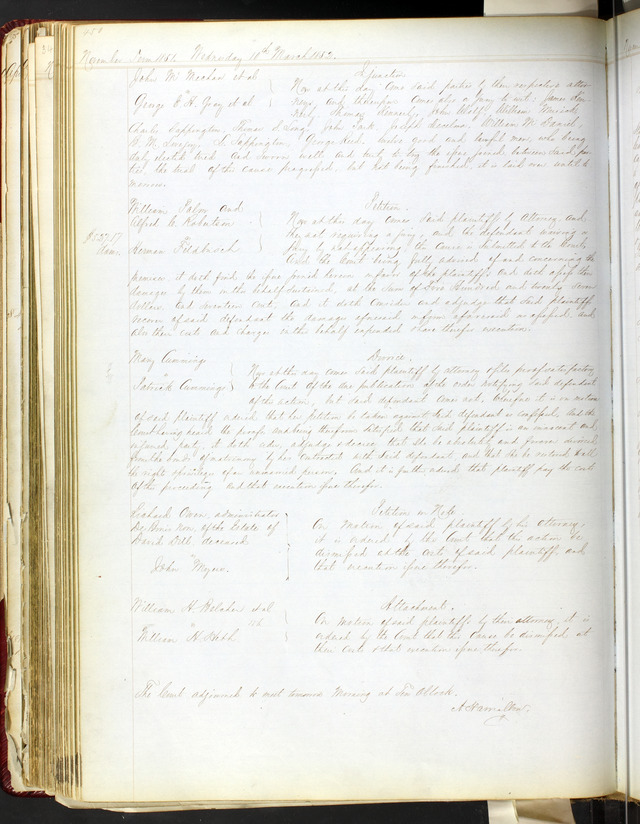 450
November Term 1851. Wednesday 10th March 1852.
John Mc Meehan et al
vs Ejectment
George R. H. Gray et al Now at this day come said parties by their respective attor
neys, and thereupon comes also a jury to wit, James
Thomas Kennerly, John Wolff, William
Charles Sappington, Thomas D. Long, John Park, Joseph William M.
Sappington, George twelve good and lawful men, who being
duly elected tried and sworn well and truly to try the issue joined between said par
ties, the trial of the cause progressed, but not being finished, it is laid over until to
morrow.
William Tabor and Petition.
Alfred C. Robertson Now at this day comes said plaintiffs by Attorney, and
vs the not requiring a jury, and the defendant waiving a
$527.17 Herman jury by not appearing the cause is submitted to the Court,
Dam. And the Court being fully advised of and concerning the
premises, it doth find the issue joined herein in favor of the plaintiffs and doth assess their
damages by them in this behalf sustained, at the sum of Five Hundred and twenty seven
dollars and seventeen cents. And it doth consider and adjudge that said plaintiffs
recover of said defendant the damages aforesaid in form aforesaid assessed, and
also their costs and charges in this behalf expended & have thereof execution.
Mary Cummings Divorce.
vs Now at this day comes said plaintiff by attorney & files proof satisfactory
Patrick Cummings to the Court of the due publication of the order notifying said defendant
of this action, but said defendant comes not. Wherefore it is on motion
of said plaintiff ordered that her petition be taken against said defendant as confessed. And the
Court having heard the proofs and being therefrom satisfied that said plaintiff is an innocent and
injured party, it doth order, adjudge & decree that she be absolutely and forever divorced
from the bonds of matrimony by her contracted with said defendant, and that she be restored to all
the rights & privileges of an unmarried person. And it is further ordered that plaintiff pay the costs
of this proceeding and that execution issue therefor.
Richard Owen administrator Petition on Note.
De Bonis Non, of the Estate of On motion of said plaintiff by his attorney,
David Dill deceased it is ordered by the Court that this action be
vs dismissed at the costs of said plaintiff and
John Myers. that execution issue therefor.
William H. Belcher et al Attachment.
vs 116 On motion of said plaintiffs by their attorney, it is
William H. ordered by the Court that this cause be dismissed at
their costs & that execution issue therefor.
The Court adjourned to meet tomorrow morning at Ten OClock.
A. Hamilton.